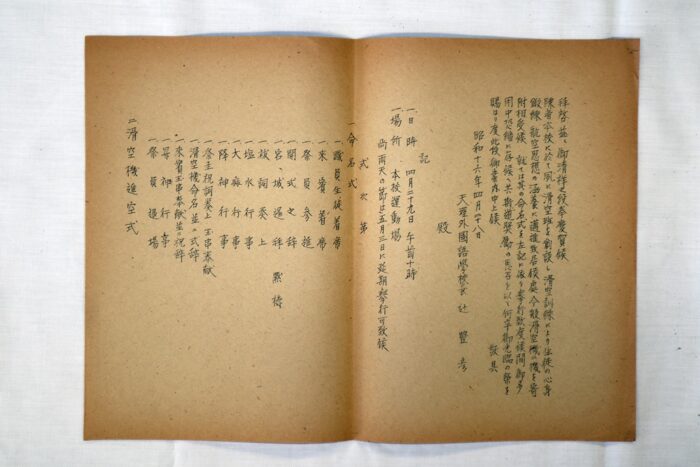 拝啓益々御清祥之段奉慶賀候
陳者本校ニ於て夙に滑空班を創設し滑空訓練により生徒の心身
鍛錬航空思想の涵養に邁進致居候處今般滑空機一機を寄
附相受候 就ては其の命名式を左記に依り挙行致度候間御多
用中恐縮に存候へ共斯道奨励の思召を以て何卒御光臨の栄を
賜はり度此段御案内申上候
敬具
昭和十六年四月廿八日
天理外國語學校長 辻 豊彦
殿
記
一、日時 四月二十九日 午前十時
一、場所 本校運動場
尚雨天の節は五月三日に延期挙行可致候
式次第
一 命名式
一、職員生徒着席
一、来賓着席
一、祭員参進
一、開式之辞
一、宮城遥拝 黙祷
一、祓詞奏上
一、塩水行事
一、大麻行事
一、降神行事
一、祭主祝詞奏上 玉串奉献
一、滑空機命名並に式辞
一、来賓玉串奉献並に祝辞
一、昇神行事
一、祭員退場
二 滑空機進空式